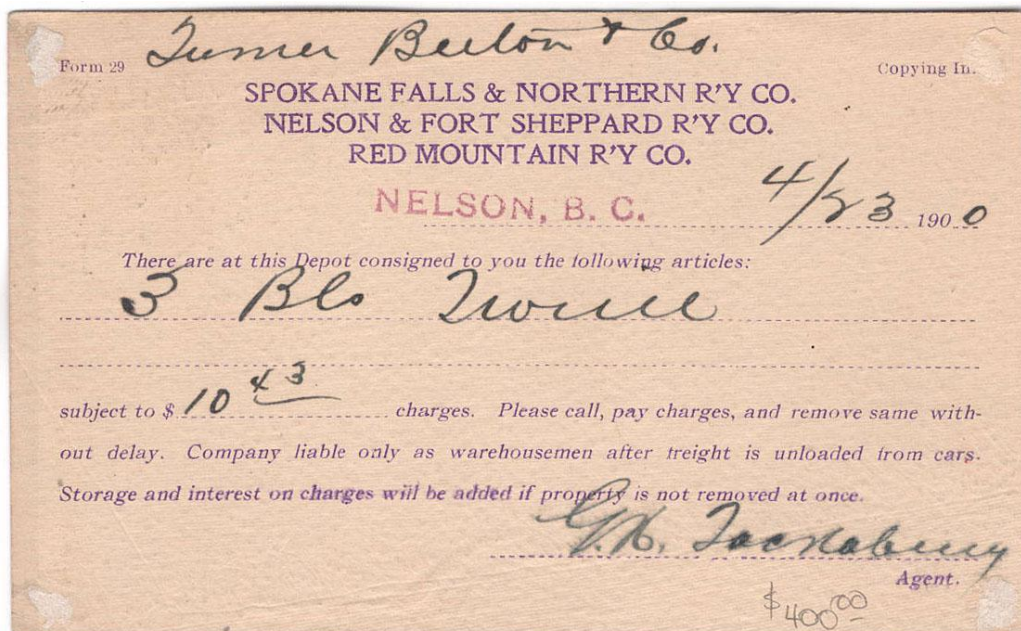 Form 29 Turner Beeton & Co. Copying In.
SPOKANE FALLS & NORTHERN R'Y CO.
NELSON & FORT SHEPPARD R'Y CO.
RED MOUNTAIN R'Y CO.
NELSON, B. C. 4/23 1900
There are at this Depot consigned to you the following articles:
3 Bls Twine
subject to $ 10 43 charges. Please call, pay charges, and remove same with-
out delay. Company liable only as warehousemen after freight is unloaded from cars.
Storage and interest on charges will be added if property is not removed at once.
G.K. Tackabury
Agent.
$400.00